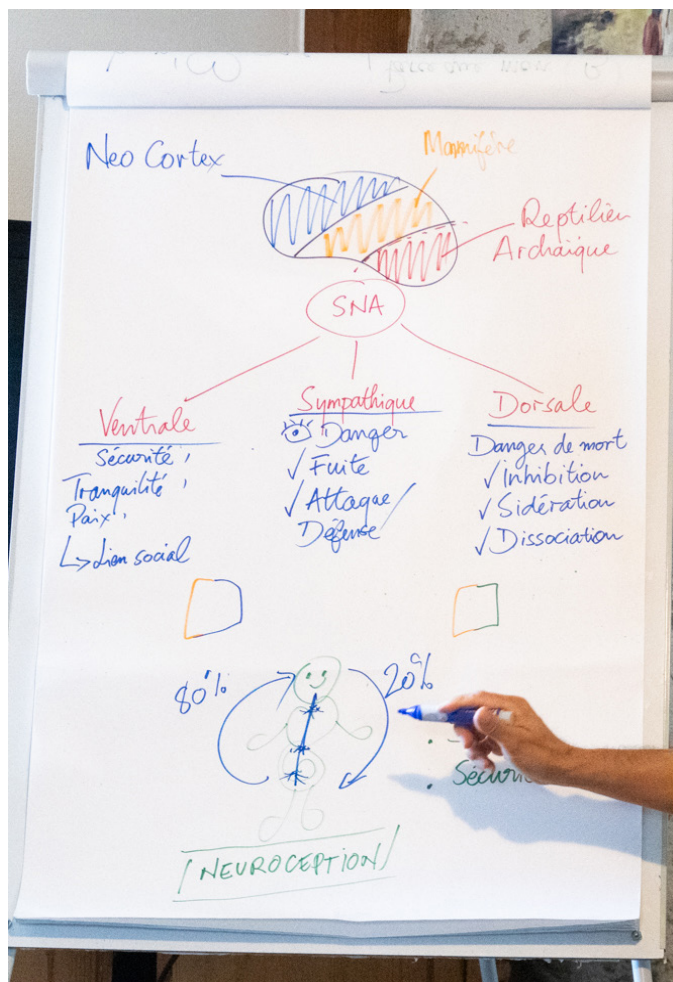 Neo Cortex
Mammifère
Reptilien
Archaïque
SNA
Ventrale
Sécurité,
Tranquilité,
Paix,
↳ Lien social
Sympathique
Danger
✓ Fuite
✓ Attaque/
Défense
Dorsale
Danger de mort
✓ Inhibition
✓ Sidération
✓ Dissociation
80%
20%
NEUROCEPTION